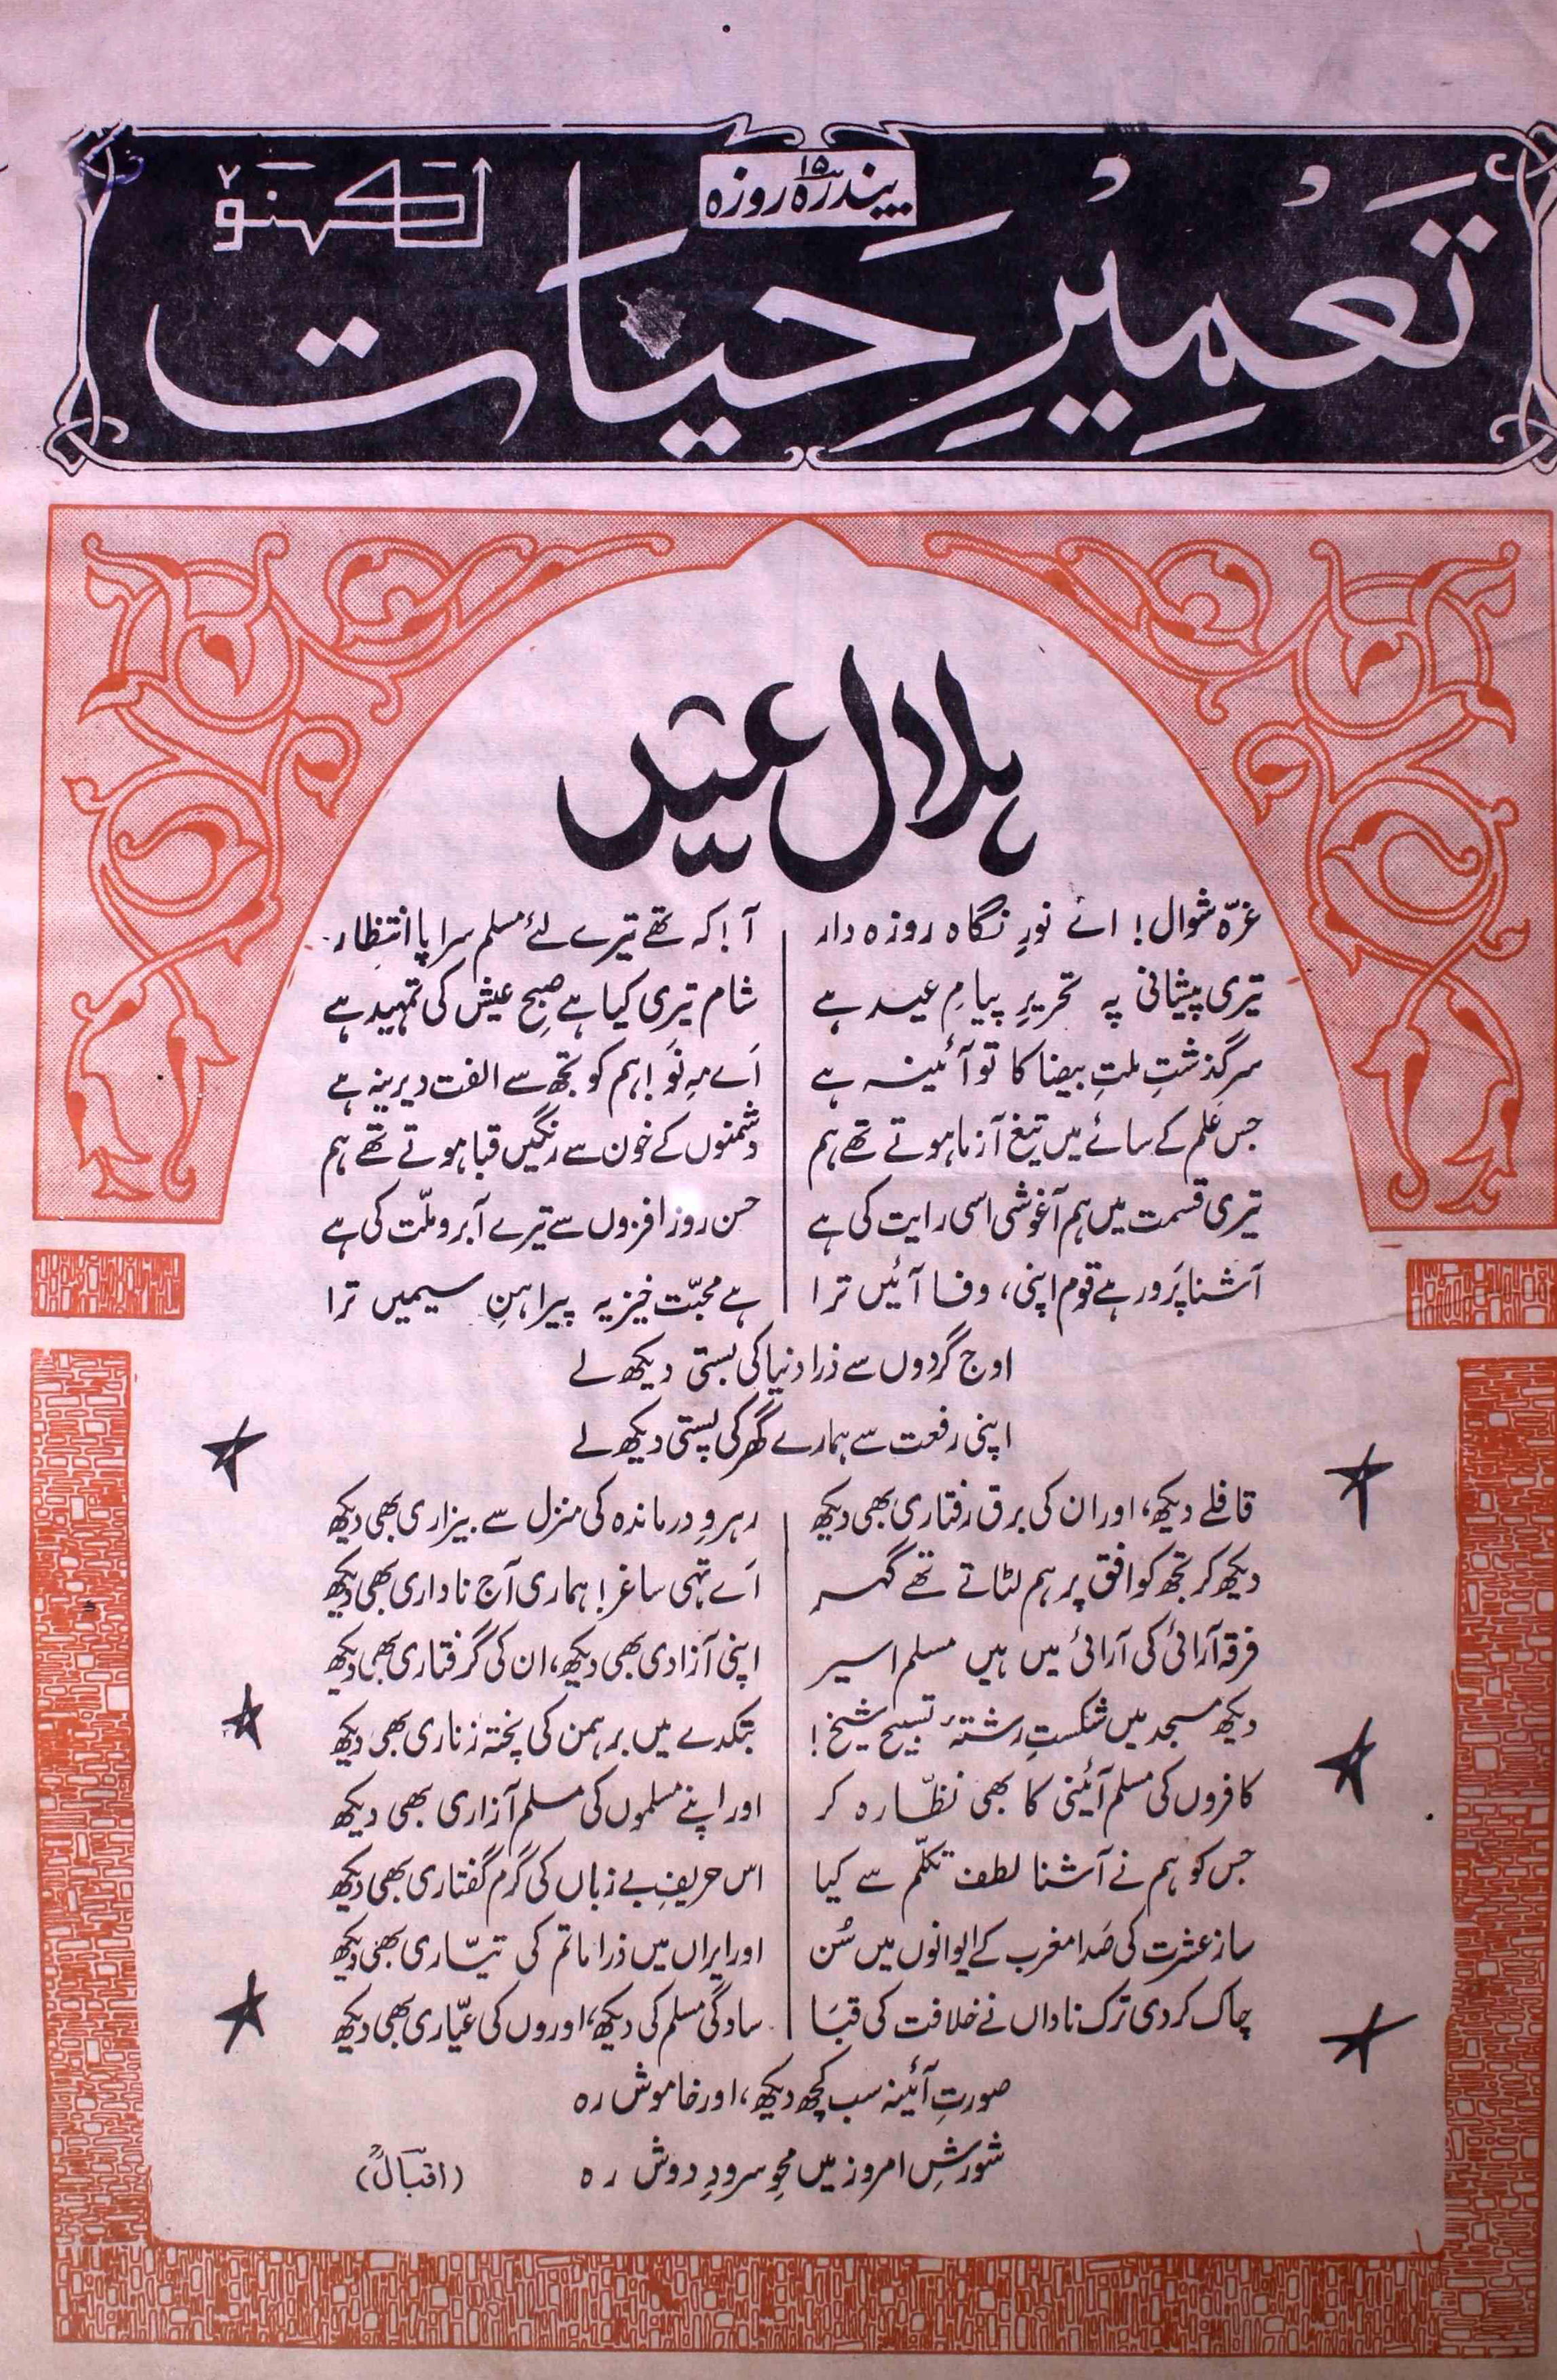 پندرہ روزہ
۱۵
تعمیرِ حیات
لکھنؤ
ہلال عید
غرّہ شوال! اے نورِ نگاہ روزہ دار
آ! کہ تھے تیرے لئے مسلم سراپا انتظار
تیری پیشانی پہ تحریرِ پیامِ عید ہے
شام تیری کیا ہے صبحِ عیش کی تمہید ہے
سرگذشتِ ملتِ بیضا کا تو آئینہ ہے
اَے مہِ نَو! ہم کو تجھ سے الفت دیرینہ ہے
جس عَلم کے سائے میں تیغ آزما ہوتے تھے ہم
دشمنوں کے خون سے رنگیں قبا ہوتے تھے ہم
تیری قسمت میں ہم آغوشی اسی رایت کی ہے
حسن روز افزوں سے تیرے آبرو ملّت کی ہے
آشنا پَرور ہے قوم اپنی، وفا آئیں ترا
ہے محبّت خیز یہ پیراہنِ سیمیں ترا
اوج گردوں سے ذرا دنیا کی بستی دیکھ لے
اپنی رفعت سے ہمارے گھر کی پستی دیکھ لے
قافلے دیکھ، اور ان کی برق رفتاری بھی دیکھ
رہروِ درماندہ کی منزل سے بیزاری بھی دیکھ
دیکھ کر تجھ کو افق پر ہم لٹاتے تھے گہر
اَے تہی ساغر! ہماری آج ناداری بھی دیکھ
فرقہ آرائی کی آرائی میں ہیں مسلم اسیر
اپنی آزادی بھی دیکھ، ان کی گرفتاری بھی دیکھ
دیکھ مسجد میں شکستِ رشتۂ تسبیح شیخ!
بتکدے میں برہمن کی پختہ زناری بھی دیکھ
کافروں کی مسلم آئینی کا بھی نظّارہ کر
اور اپنے مسلموں کی مسلم آزاری بھی دیکھ
جس کو ہم نے آشنا لطف تکلّم سے کیا
اس حریفِ بے زباں کی گرم گفتاری بھی دیکھ
ساز عشرت کی صَدا مغرب کے ایوانوں میں سُن
اور ایراں میں ذرا ماتم کی تیّاری بھی دیکھ
چاک کر دی ترک ناداں نے خلافت کی قبَا
سادگی مسلم کی دیکھ، اوروں کی عیّاری بھی دیکھ
صورتِ آئینہ سب کچھ دیکھ، اور خاموش رہ
شورشِ امروز میں محوِ سرودِ دوش رہ
(اقبالؒ)